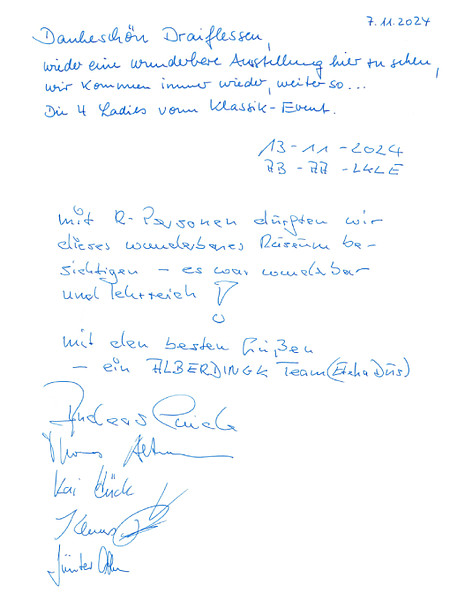 7.11.2024
Dankeschön Draiflessen,
wieder eine wunderbare Ausstellung hier zu sehen,
wir kommen immer wieder, weiter so...
Die 4 Ladies vom Klassik-Event.
13-11-2024
mit Personen durften wir
dieses wunderbares Museum be-
sichtigen - es war wunderbar
und lehrreich!
mit den besten Grüßen
- ein ALBERDINGK Team
Andreas
Thomas
Kai Hück
Klaus
Günter